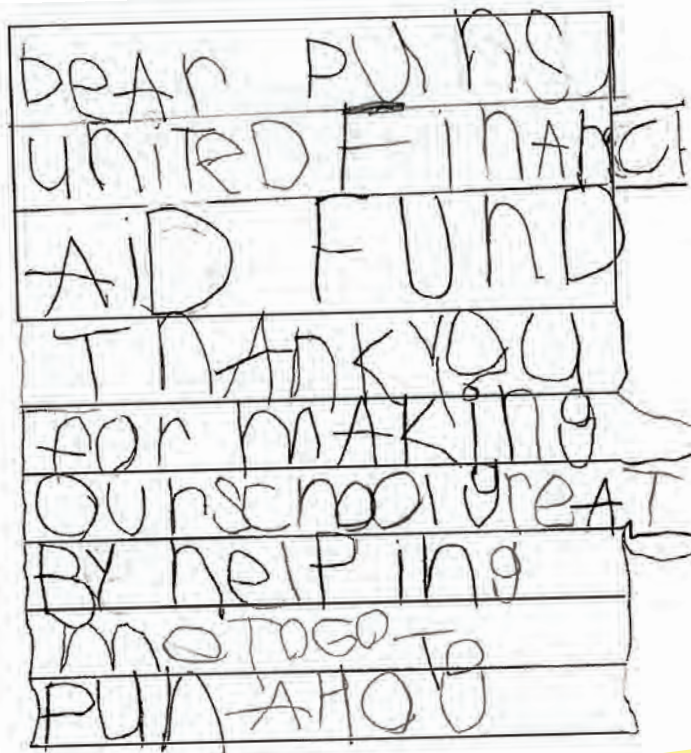 DeAr PUnS
UniTeD FinAnCI
AiD FUnD
ThAnk you
for mAKing
Our school greAT
By helPing
me To Go To
PUnAHOU